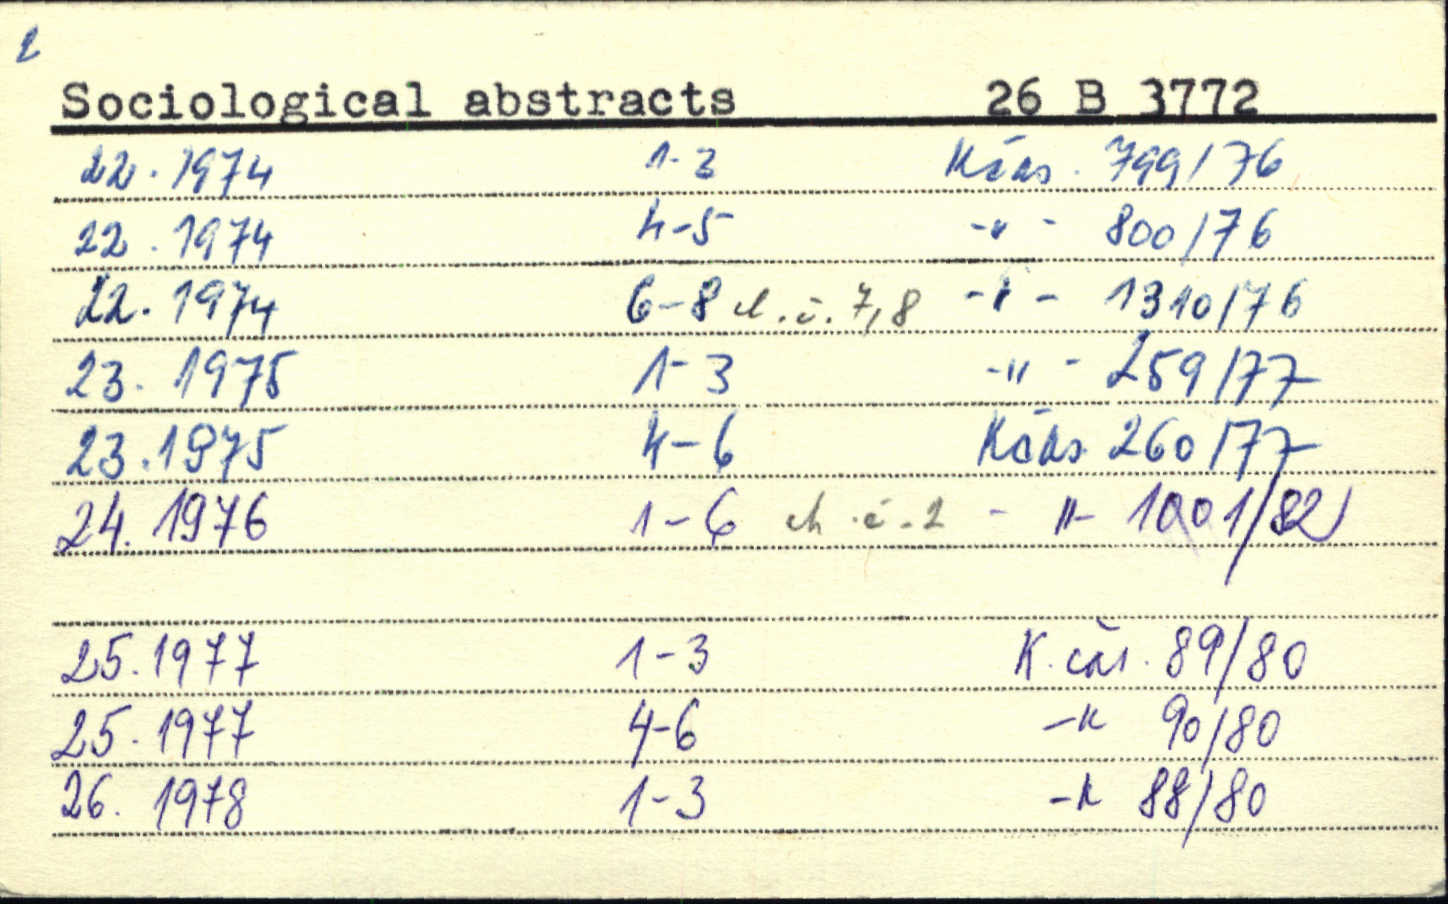 2
Sociological abstracts 26 B 3772
22. 1974 1-3 Kčas. 799/76
22. 1974 4-5 -"- 800/76
22. 1974 6-8 ch. č. 7,8 -"- 1310/76
23. 1975 1-3 -"- 259/77
23. 1975 4-6 Kčas. 260/77
24. 1976 1-6 ch. č. 2 -"- 1001/82
25. 1977 1-3 K. čas. 89/80
25. 1977 4-6 -"- 90/80
26. 1978 1-3 -"- 88/80